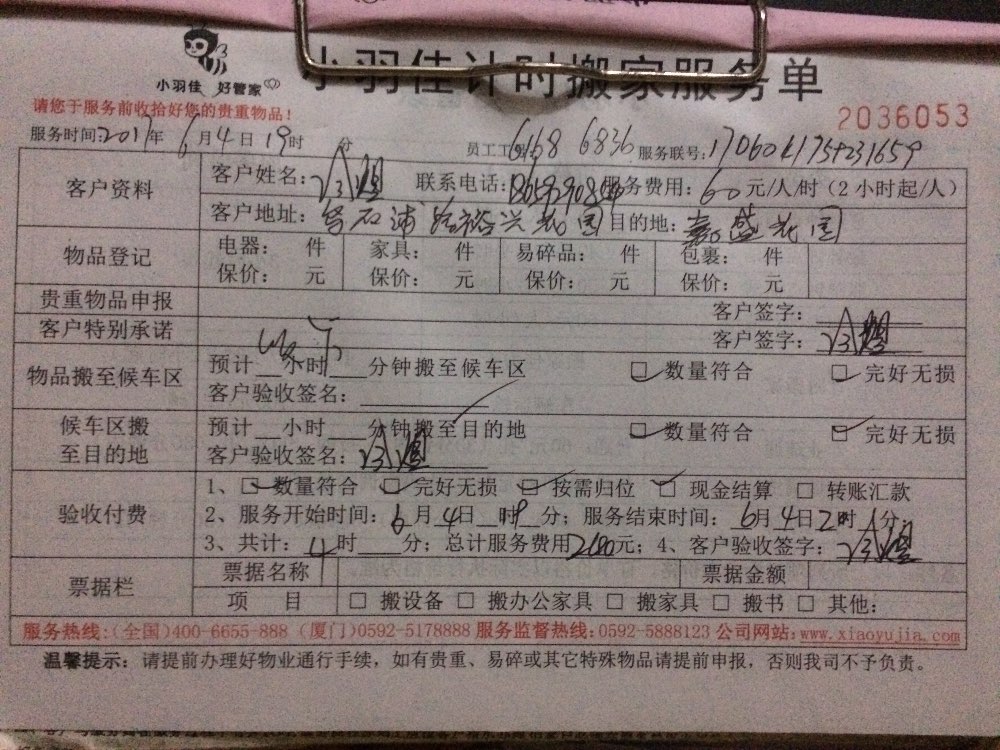 小羽佳 好管家
小羽佳计时搬家服务单
请您于服务前收拾好您的贵重物品！
2036053
服务时间:2017年6月4日19时 分 员工工号: 6168 6836 服务联号:
客户资料 客户姓名: 联系电话: 服务费用: 60元/人/时（2小时起/人）
客户地址: 目的地: 嘉盛花园
物品登记 电器: 件 家具: 件 易碎品: 件 包裹: 件
保价: 元 保价: 元 保价: 元 保价: 元
贵重物品申报 客户签字:
客户特别承诺 客户签字:
物品搬至候车区 预计__小时___分钟搬至候车区 □数量符合 □完好无损
客户验收签名:
候车区搬至目的地 预计__小时___分钟搬至目的地 □数量符合 □完好无损
客户验收签名:
验收付费 1、□数量符合 □完好无损 □按需归位 □现金结算 □转账汇款
2、服务开始时间: 6月4日 时 分；服务结束时间: 6月4日 时 分；
3、共计: 4时___分；总计服务费用 元；4、客户验收签字:
票据栏 票据名称 票据金额
项 目 □搬设备 □搬办公家具 □搬家具 □搬书 □其他:
服务热线:(全国)400-6655-888 (厦门)0592-5178888 服务监督热线:0592-5888123 公司网站:www.xiaoyujia.com
温馨提示：请提前办理好物业通行手续，如有贵重、易碎或其它特殊物品请提前申报，否则我司不予负责。